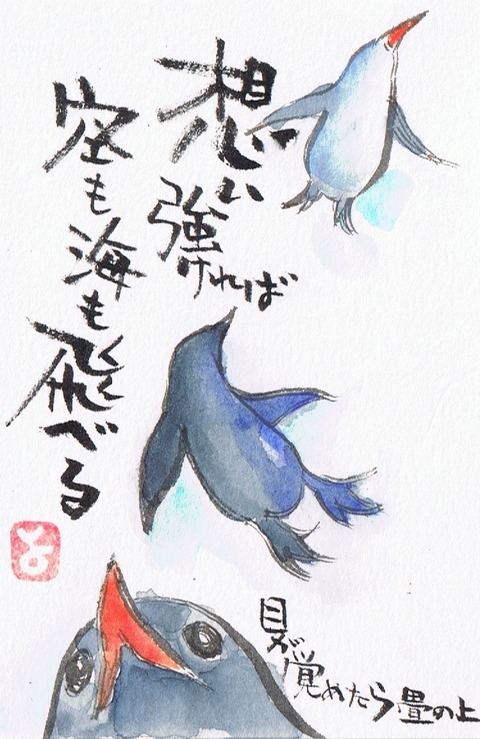 想い強ければ
空も海も飛べる
目が覚めたら畳の上
と